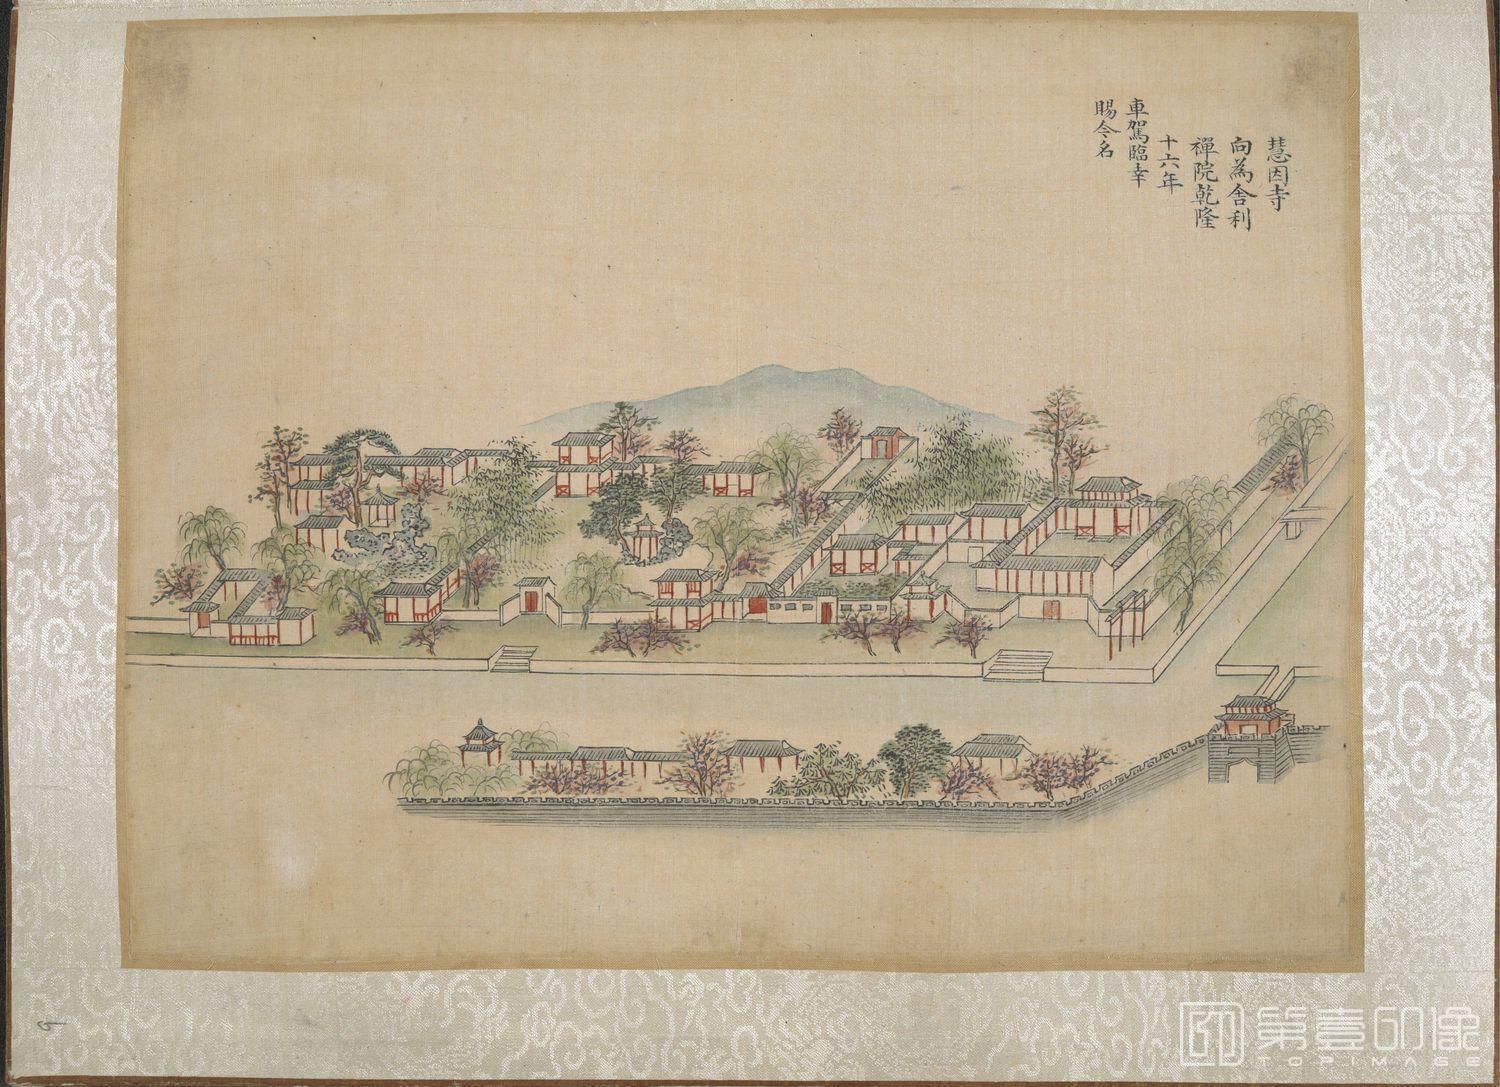 慧因寺
向為舎利
禪院乾隆
十六年
車駕臨幸
賜今名
第壹印像
TOPIMAGE